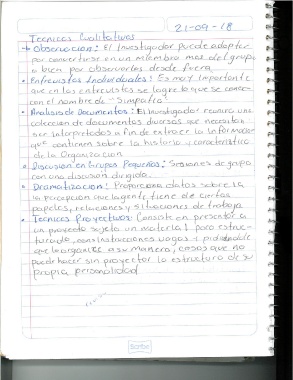 21-09-18
Tecnicas Cualitativas
→ Observacion: El Investigador puede adoptar
por convertirse en un miembro mas del grupo
o bien por observarlos desde fuera
• Entrevistas Individuales: Es muy importante
que en las entrevistas se logre lo que se conoce
con el nombre de "Simpatia"
• Analisis de Documentos: El investigador reunira una
coleccion de documentos diversos que necesitan
ser interpretados a fin de extraer la informacion
que contienen sobre la historia y caracteristica
de la Organizacion
• Discusion en Grupos Pequeños: Sesiones de grupo
con una discusion dirigida
• Dramatizacion: Proporciona datos sobre la
percepcion que la gente tiene de ciertos
papeles, relaciones y situaciones de trabajo
• Tecnicas Proyectivas: Consiste en presentar a
un sujeto un material poco estruc-
turado, con instrucciones vagas y pidiendole
que lo organice a su manera, cosas que no
puede hacer sin proyectar la estructura de su
propia personalidad
Scribe